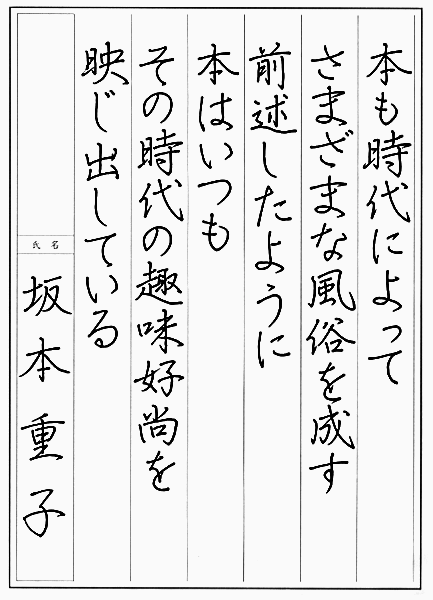 本も時代によって
さまざまな風俗を成す
前述したように
本はいつも
その時代の趣味好尚を
映じ出している
氏名
坂本重子